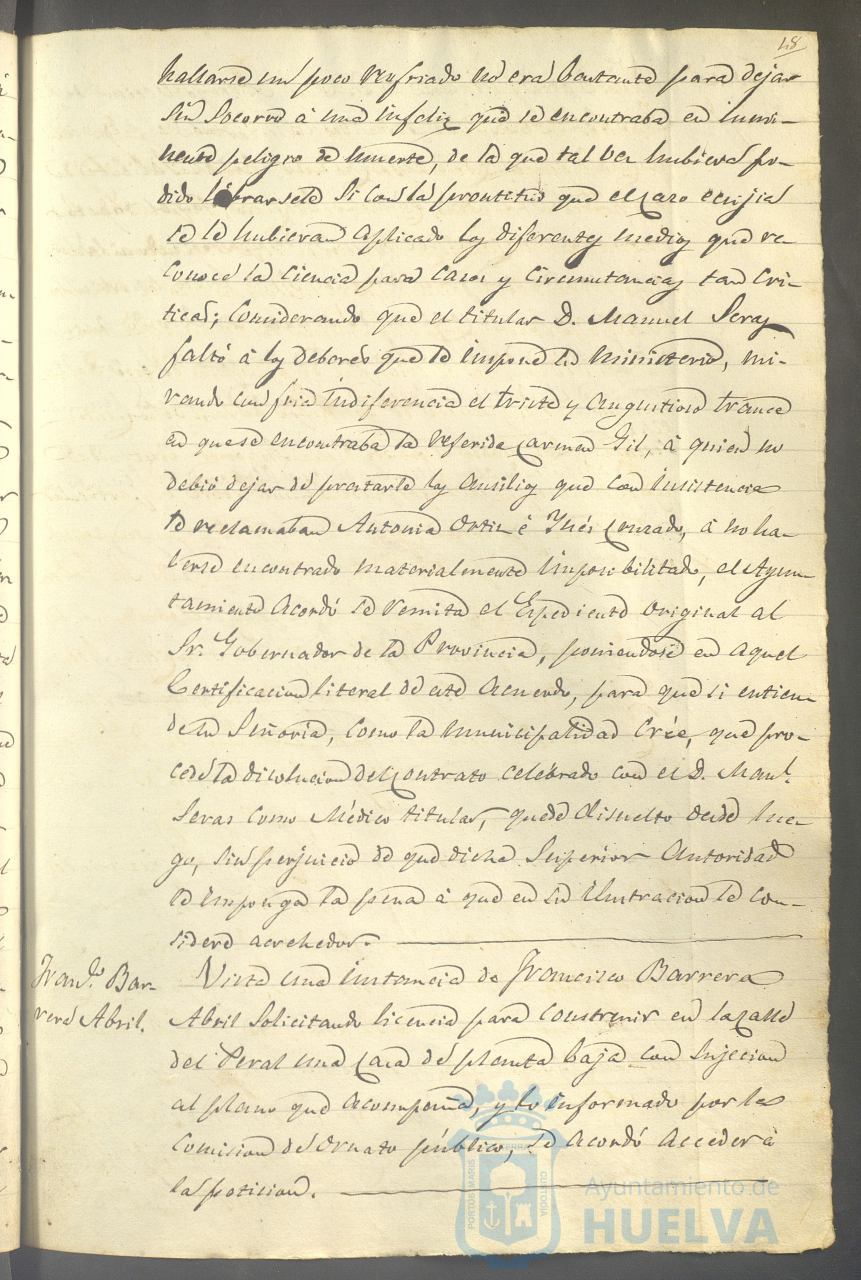 48
hallarse un poco resfriado no era bastante para dejar
sin socorro á una infeliz que se encontraba en inmi-
nente peligro de muerte, de la que tal vez hubiera po-
dido librarsele si con la prontitud que el caso ecsijia
se le hubieran aplicado los diferentes medios que re-
conoce la ciencia para casos y circunstancias tan cri-
ticas; considerando que el titular D. Manuel Seras
faltó á los deberes que le impone su ministerio, mi-
rando con fria indiferencia el triste y angustioso trance
en que se encontraba la referida Carmen Gil, á quien no
debió dejar de prestarle los ausilios que con insistencia
le reclamaban Antonia Ortiz é Ynés Cruzado, á no ha-
berse encontrado materialmente imposibilitado, el Ayun-
tamiento acordó se remita el Espediente original al
Sr. Gobernador de la Provincia, poniendose en aquel
Certificacion literal de este acuerdo, para que si entien-
de Su Señoria, como la municipalidad Crée, que pro-
cede la disolucion del Contrato celebrado con el D. Manl.
Seras como Médico titular, quede disuelto desde lue-
go, sin perjuicio de que dicha Superior Autoridad
le imponga la pena á que en su ilustracion le con-
sidere acrehedor.
Franco. Bar-
rera Abril.
Vista una instancia de Francisco Barrera
Abril solicitando licencia para construir en la calle
del Peral una casa de planta baja con sujecion
al plano que acompaña, y lo informado por la
Comision de Ornato público, se acordó acceder á
la peticion.
PORTUS MARIS
TERRAE
CUSTODIA
Ayuntamiento de
HUELVA